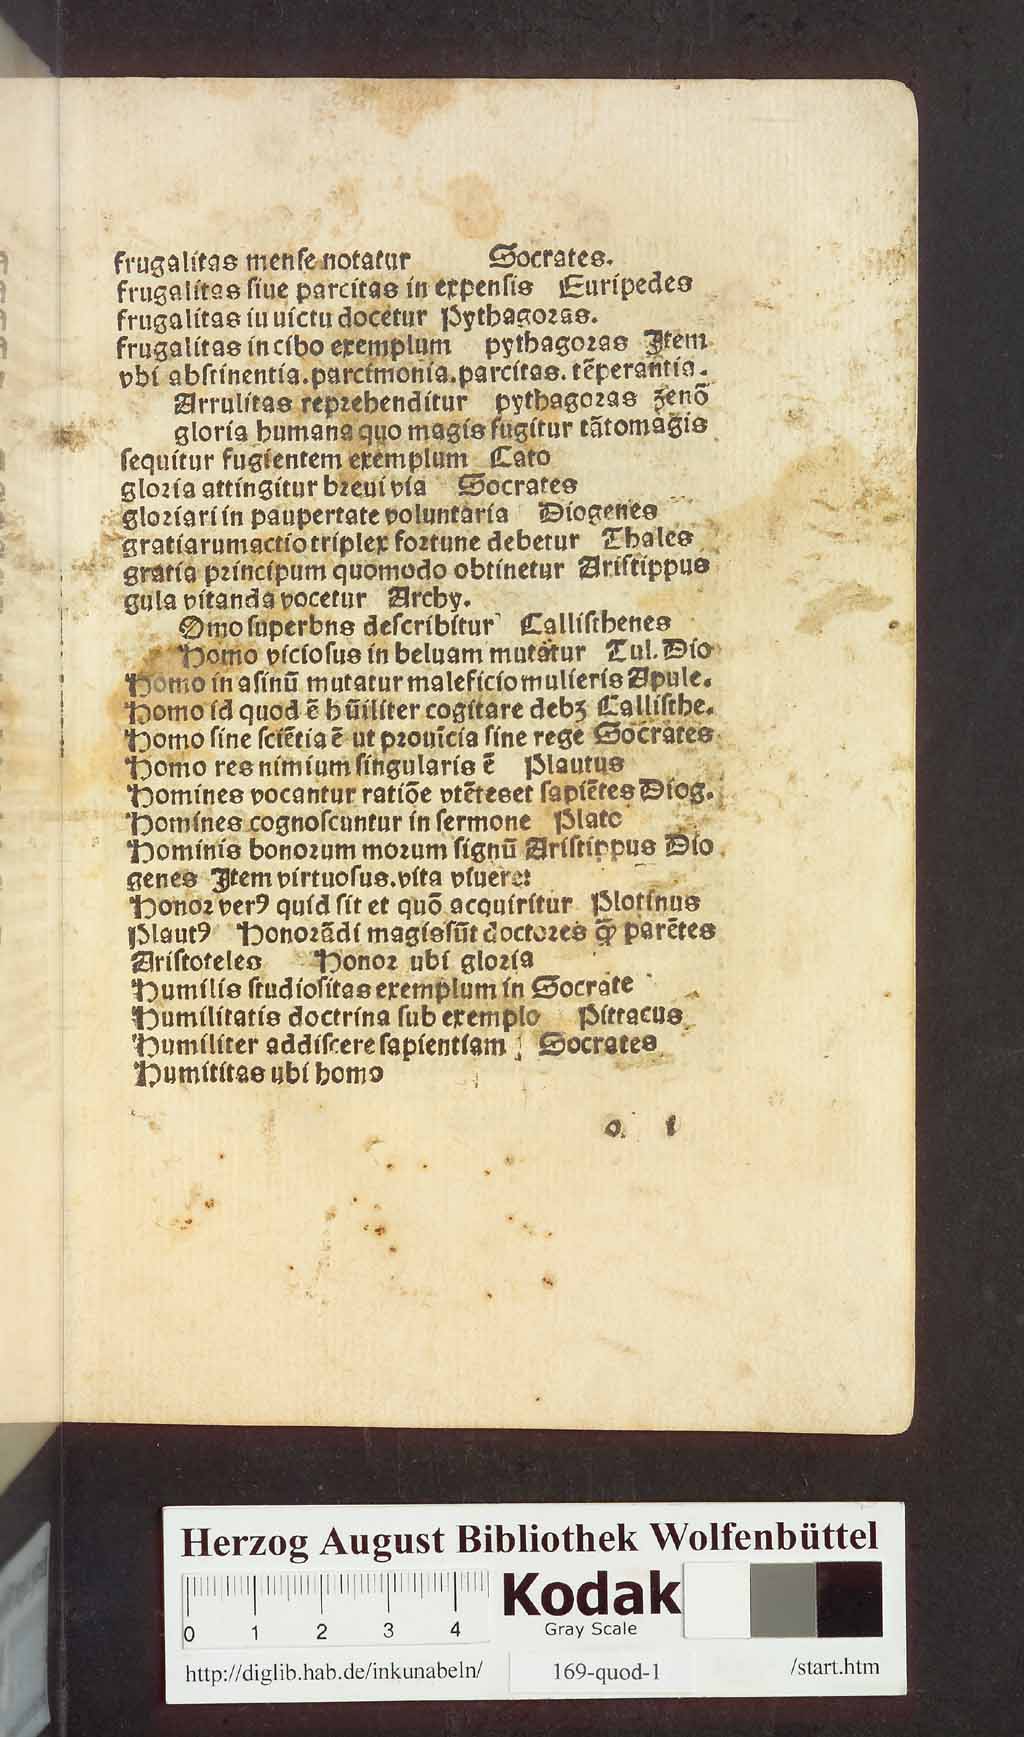 frugalitas mense notatur Socrates.
frugalitas siue parcitas in expensis Euripedes
frugalitas iu uictu docetur Pythagoras.
frugalitas in cibo exemplum pythagoras Item
vbi abstinentia.parcimonia.parcitas.tēperantia.
Arrulitas reprehenditur pythagoras zenō
gloria humana quo magis fugitur tātomagis
sequitur fugientem exemplum Cato
gloria attingitur breui via Socrates
gloriari in paupertate voluntaria Diogenes
gratiarumactio triplex fortune debetur Thales
gratia principum quomodo obtinetur Aristippus
gula vitanda vocetur Archy.
Omo superbns describitur Callisthenes
Homo viciosus in beluam mutatur Tul. Dio
Homo in asinū mutatur maleficio mulieris Apule.
Homo id quod ē hūiliter cogitare debꝫ Callisthe.
Homo sine sciētia ē ut prouīcia sine rege Socrates
Homo res nimium singularis ē Plautus
Homines vocantur ratiōe vtētes et sapiētes Diog.
Homines cognoscuntur in sermone Plato
Hominis bonorum morum signū Aristippus Dio
genes Item virtuosus.vita viuere:
Honor verꝰ quid sit et quō acquiritur Plotinus
Plautꝰ Honorādi magis sūt doctores ꝙ̄ parētes
Aristoteles Honor ubi gloria
Humilis studiositas exemplum in Socrate
Humilitatis doctrina sub exemplo Pittacus
Humiliter addiscere sapientiam Socrates
Humititas ubi homo
o. i
Herzog August Bibliothek Wolfenbüttel
0 1 2 3 4
Kodak
Gray Scale
http://diglib.hab.de/inkunabeln/ 169-quod-1 /start.htm